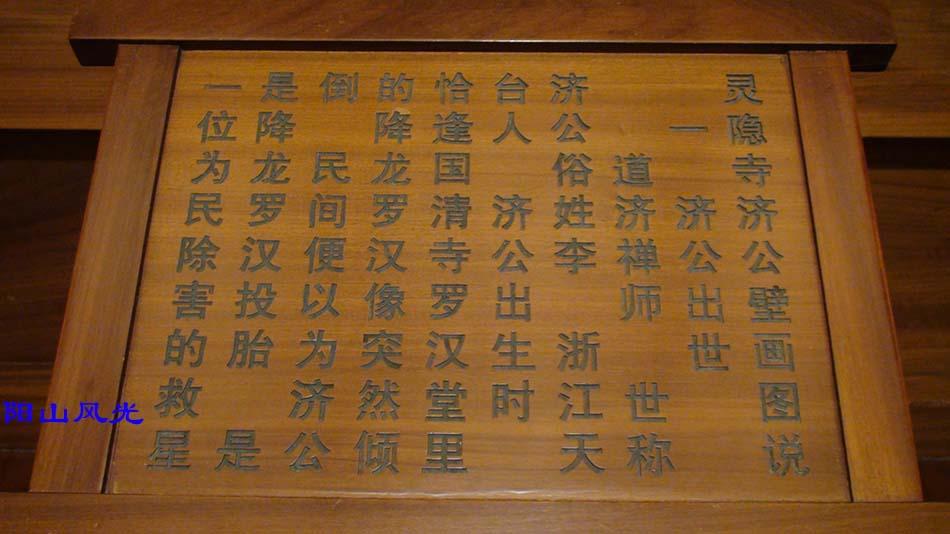 灵隐寺济公壁画图说
一 济公出世
道济禅师 世称
济公俗姓李 浙江天
台人 济公出生时
恰逢国清寺罗汉堂里
的降龙罗汉像突然倾
倒 民间便以为济公
是降龙罗汉投胎 是
一位为民除害的救星
阳山风光